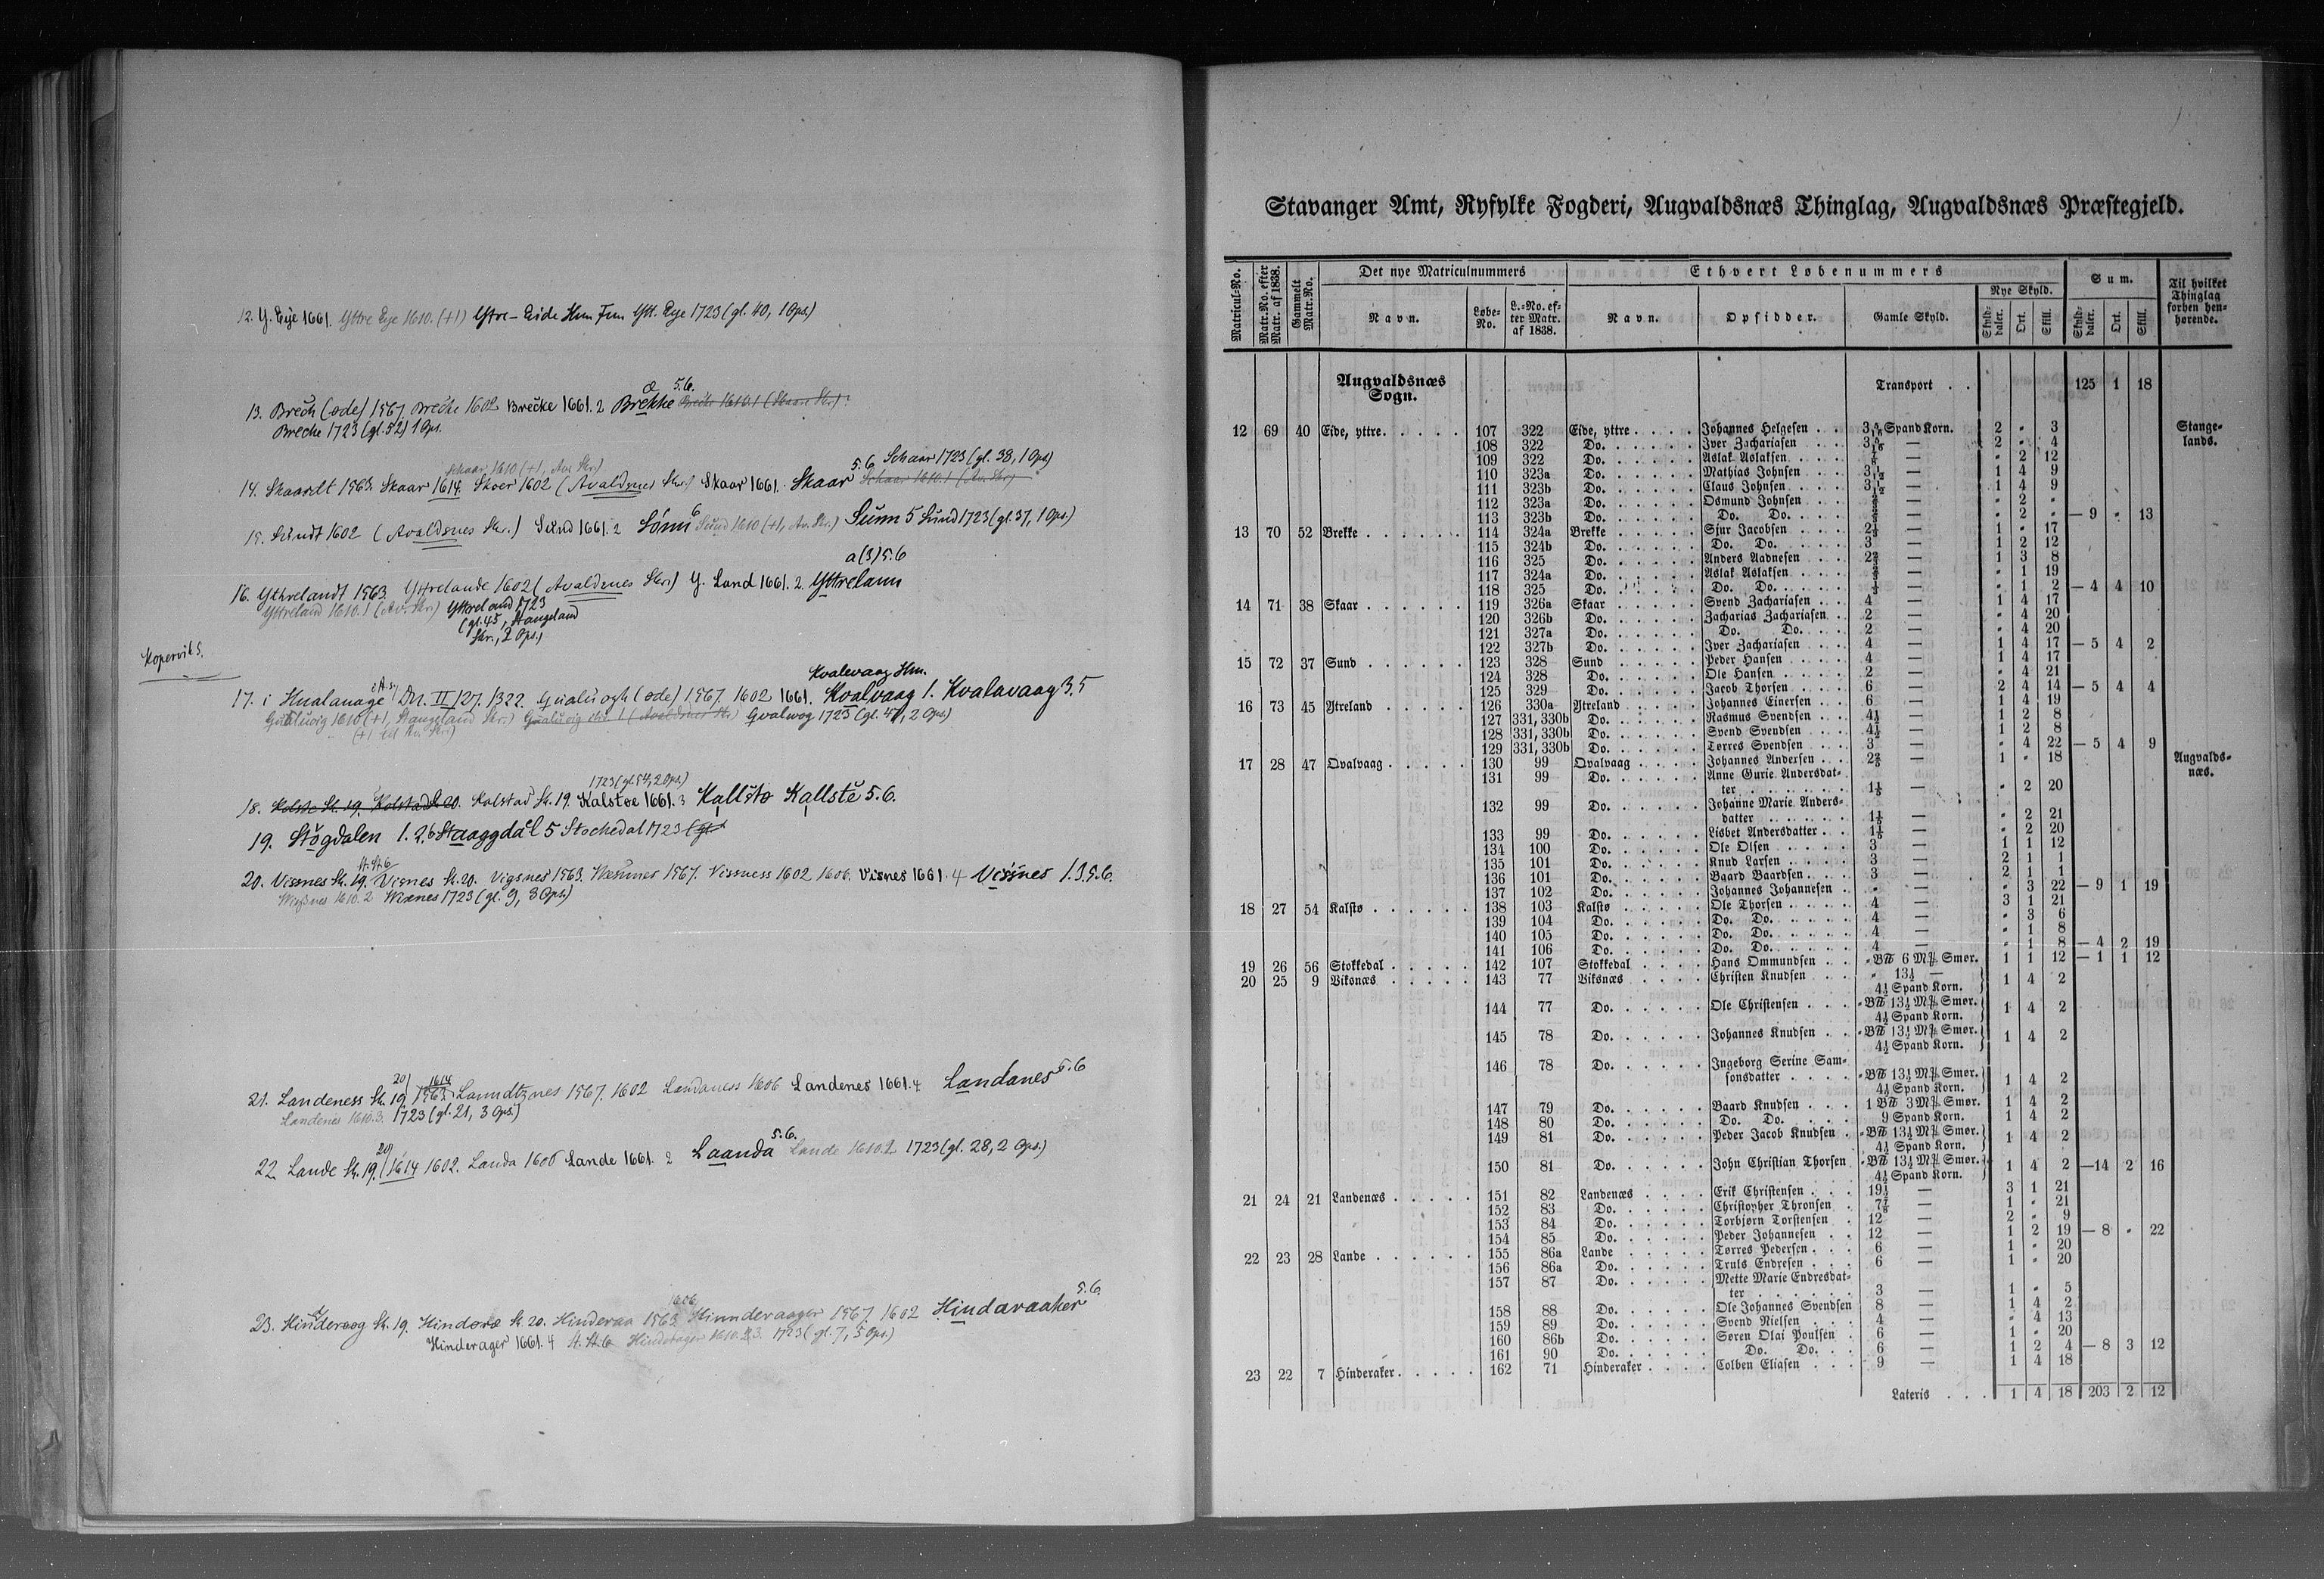 12. Y. Eije 1661. Yttre Eye 1610. (+1) Ytre-Eide Hm. Fm. Ytt. Eye 1723 (gl. 40, 1 Ops.)
13. Brech (øde) 1567. Breche 1602 Brecke 1661. 2 Brekke 5.6. Breche 1610.1 (Skaare Skr.)
Breche 1723 (gl. 52) 1 Ops.
schaar 1610 (+1, Av. Skr.)
14. Skaardt 1563. Skaar 1614. Skoer 1602 (Avaldsnes Skr.) Skaar 1661. Skaar 5.6. Schaar 1723 (gl. 38, 1 Ops.)
Schaar 1610.1 (Av. Skr.)
15. Sundt 1602 (Avaldsnes Skr.) Sund 1661. 2 Sónn 6 Sund 1610 (+1, Av. Skr.) Sunn 5 Sund 1723 (gl. 37, 1 Ops.)
a (3) 5.6
16. Ythrelandt 1563. Yttrelande 1602 (Avaldsnes Skr.) Y. Land 1661. 2. Yttrelann
Yttreland 1610.1 (Av. Skr.) Yttreland 1723
(gl. 45, Stangeland
Skr., 2 Ops.)
Kopervik S.
Kvalevaag Hm.
17. i Hualauage DN. II 127. 1322. Qualuogh (øde) 1567. 1602 1661. Kvalvaag 1. Kvalavaag 3.5
Qualuvig 1610 (+1, Stangeland Skr.) Qvalwog 1723 (gl. 47, 2 Ops.)
1723 (gl. 54, 2 Ops.)
18. Kolste St. 19. Kolstad St. 20. Kolstad St. 19. Kalstøe 1661. 3 Kallstø Kallste 5.6.
19. Stogdalen 1. 2. 6 Staaggdal 5 Stochedal 1723 (gl.
St. St. 6
20. Vissnes St. 19. Visnes St. 20. Vigsnes 1563. 1567. Vissness 1602 1606. Visnes 1661. 4 Vissnes 1.3.5.6.
1610. 2 Wixnes 1723 (gl. 9, 3 Ops.)
21. Landeness St. 19 20 1563. 1614 Lanndtznes 1567. 1602 Landaness 1606 Landenes 1661. 4 Landanes 5.6
Landenes 1610. 3. 1723 (gl. 21, 3 Ops.)
22. Lande St. 19. 20 1614 1602. Landa 1606 Lande 1661. 2 Laanda 5.6. Lande 1610.2 1723 (gl. 28, 2 Ops.)
23. Hinderoog St. 19. Hindoræ St. 20. Hinderaa 1563. 1606 Hinnderaager 1567. 1602 Hindaraaker 5.6.
Hinderager 1661. 4 St. St. 6 Hinderager 1610. 3. 1723 (gl. 7, 5 Ops.)
Stavanger Amt, Ryfylke Fogderi, Augvaldsnæs Thinglag, Augvaldsnæs Præstegjeld.
Matricul-No. Matr.No. efter Matr. af 1838. Gammelt Matr.No. Det nye Matriculnummers Ethvert Løbenummers Sum. Til hvilket Thinglag forhen henhørende.
Navn. Løbe-No. L.-No. efter Matr. af 1838. Navn. Opsidder. Gamle Skyld. Nye Skyld. Skylddaler. Ort. Skill. Skylddaler. Ort. Skill.
Augvaldsnæs Sogn. Transport . . 125 1 18
12 69 40 Eide, yttre. 107 322 Eide, yttre Johannes Helgesen 3 Spand Korn. 2 " 3 Stangelands.
108 322 Do. Iver Zachariasen 3 — 2 " 4
109 322 Do. Aslak Aslaksen — " 2 12
110 323a Do. Mathias Johnsen 3 1/12 — 1 4 9
111 323b Do. Claus Johnsen 3 1/12 — 1 4 9
112 323a Do. Osmund Johnsen — " 2 "
113 323b Do. Do. Do. — " 2 " — 9 " 13
13 70 52 Brekke 114 324a Brekke Sjur Jacobsen 2 — 1 " 17
115 324b Do. Do. Do. 3 — 1 2 12
116 325 Do. Anders Aadnesen 2 — 1 3 8
117 324a Do. Aslak Aslaksen — " 1 19
118 325 Do. Do. Do. — " 1 2 — 4 4 10
14 71 38 Skaar 119 326a Skaar Svend Zachariasen 4 — 1 4 17
120 326b Do. Zacharias Zachariasen 2 — " 4 20
121 327a Do. Do. Do. 2 — " 4 20
122 327b Do. Iver Zachariasen 4 — 1 4 17 — 5 4 2
15 72 37 Sund 123 328 Sund Peder Hansen 4 — 1 4 17
124 328 Do. Ole Hansen 2 — " 4 21
125 329 Do. Jacob Thorsen 6 — 2 4 14 — 5 4 4
16 73 45 Ytreland 126 330a Ytreland Johannes Einersen 6 — 1 4 19
127 331, 330b Do. Rasmus Svendsen 4½ — 1 2 8
128 331, 330b Do. Svend Svendsen 4½ — 1 2 8
129 331, 330b Do. Tørres Svendsen 3 — " 4 22 — 5 4 9
17 28 47 Qvalvaag 130 99 Qvalvaag Johannes Andersen 2 — 1 " 18 Augvaldsnæs.
131 99 Do. Anne Gurie Andersdatter 1 — " 2 20
132 99 Do. Johanne Marie Andersdatter 1 — " 2 21
133 99 Do. Lisbet Andersdatter 1 — " 2 20
134 100 Do. Ole Olsen 3 — 1 1 12
135 101 Do. Knud Larsen 3 — 2 1 1
136 101 Do. Baard Baardsen 3 — 2 1 1
137 102 Do. Johannes Johannesen " — " 3 22 — 9 1 19
18 27 54 Kalstø 138 103 Kalstø Ole Thorsen 4 — 3 1 21
139 104 Do. Do. Do. 4 — " 3 6
140 105 Do. Do. Do. 4 — " 1 8
141 106 Do. Do. Do. 4 — " 1 8 — 4 2 19
19 26 56 Stokkedal 142 107 Stokkedal Hans Ommundsen " B℔ 6 M℔ Smør. 1 1 12 — 1 1 12
20 25 9 Viksnæs 143 77 Viksnæs Christen Knudsen " 13½ — 4½ Spand Korn. 1 4 2
144 77 Do. Ole Christensen " B℔ 13½ M℔ Smør. 4½ Spand Korn. 1 4 2
145 78 Do. Johannes Knudsen " B℔ 13½ M℔ Smør. 4½ Spand Korn. 1 4 2
146 78 Do. Ingeborg Serine Samsonsdatter " B℔ 13½ M℔ Smør. 4½ Spand Korn. 1 4 2
147 79 Do. Baard Knudsen 1 B℔ 3 M℔ Smør. 1 4 2
148 80 Do. Do. Do. 9 Spand Korn. 1 4 2
149 81 Do. Peder Jacob Knudsen " B℔ 13½ M℔ Smør. 4½ Spand Korn. 1 4 2
150 81 Do. John Christian Thorsen " B℔ 13½ M℔ Smør. 4½ Spand Korn. 1 4 2 — 14 2 16
21 24 21 Landenæs 151 82 Landenæs Erik Christensen 19½ — 3 1 21
152 83 Do. Christopher Thronsen 7 — 1 " 21
153 84 Do. Torbjørn Torstensen 12 — 2 " 9
154 85 Do. Peder Johannesen 12 — 1 2 19 — 8 " 22
22 23 28 Lande 155 86a Lande Tørres Pedersen 6 — 1 " 20
156 86a Do. Truls Endresen 6 — 1 " 20
157 87 Do. Mette Marie Endresdatter 3 — 1 " 5
158 88 Do. Ole Johannes Svendsen 8 — 1 4 2
159 89 Do. Svend Nielsen 4 — " 4 13
160 86b Do. Søren Olai Poulsen 6 — 1 " 20
161 90 Do. Do. Do. 6 — 1 2 4 — 8 3 12
23 22 7 Hinderaker 162 71 Hinderaker Colben Eliasen 9 — 1 4 18
Lateris . . . 1 4 18 203 2 12